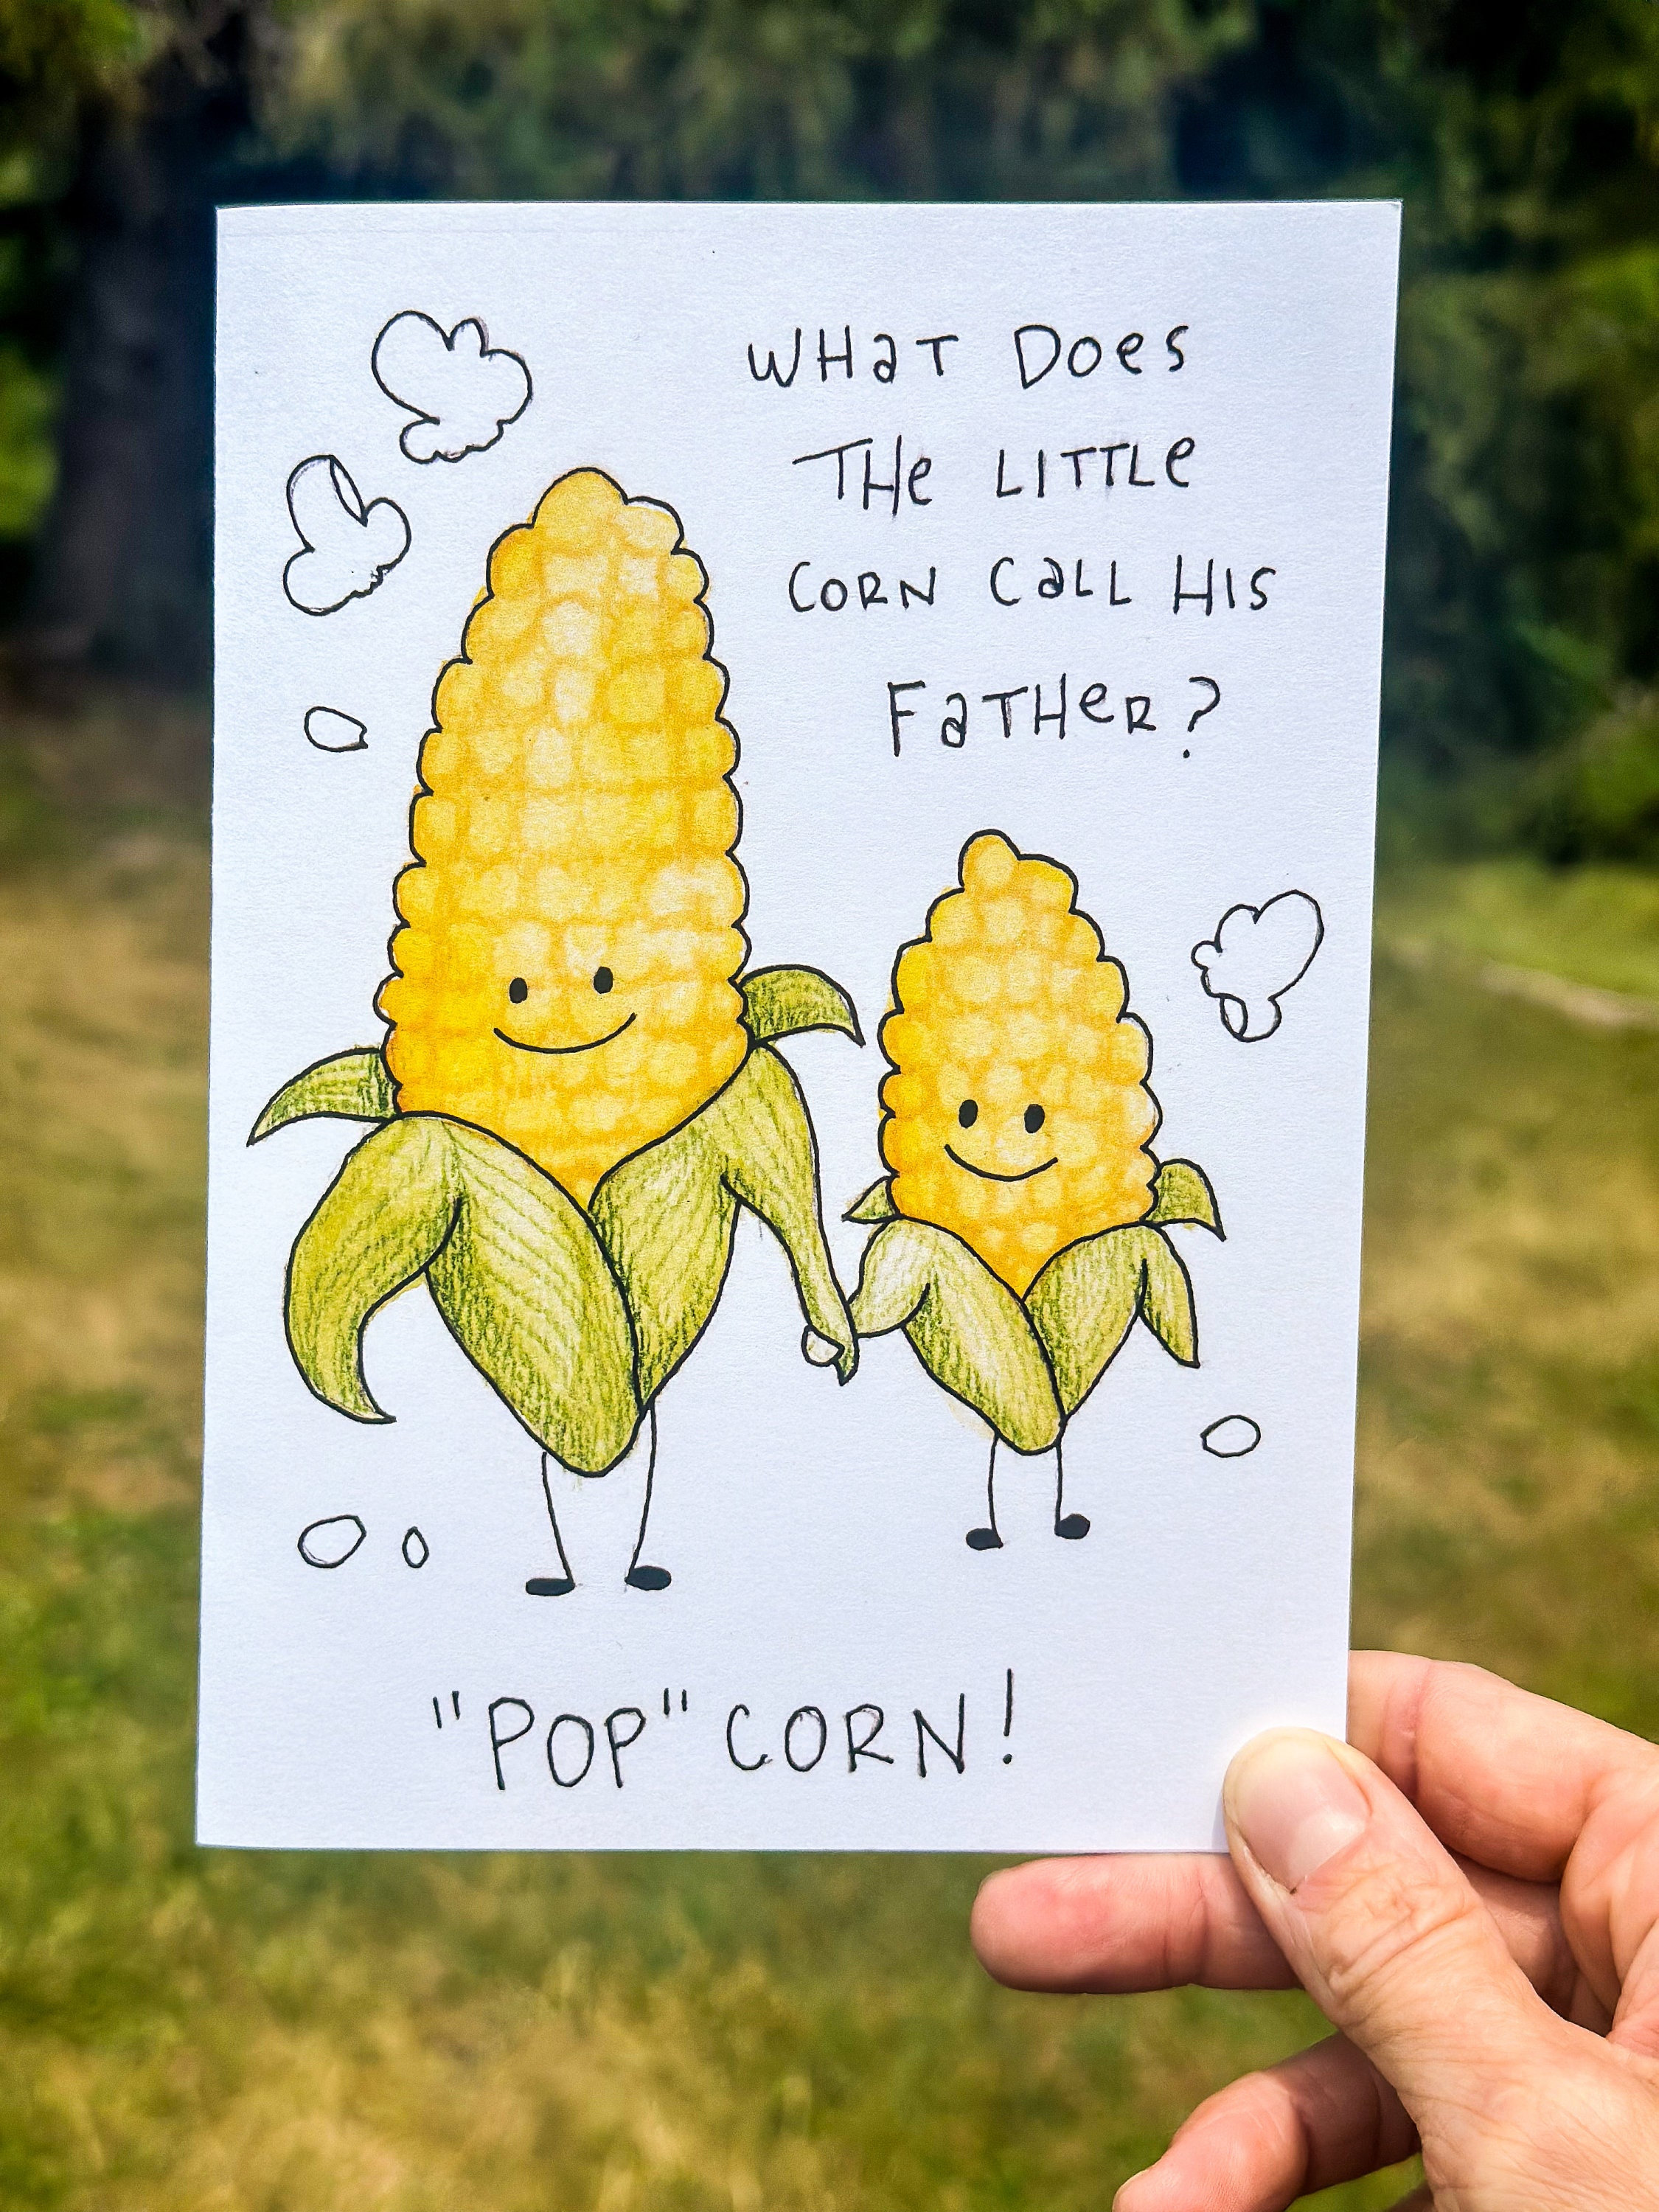 WHAT DOES
THE LITTLE
CORN CALL HIS
FATHER?
"POP" CORN!